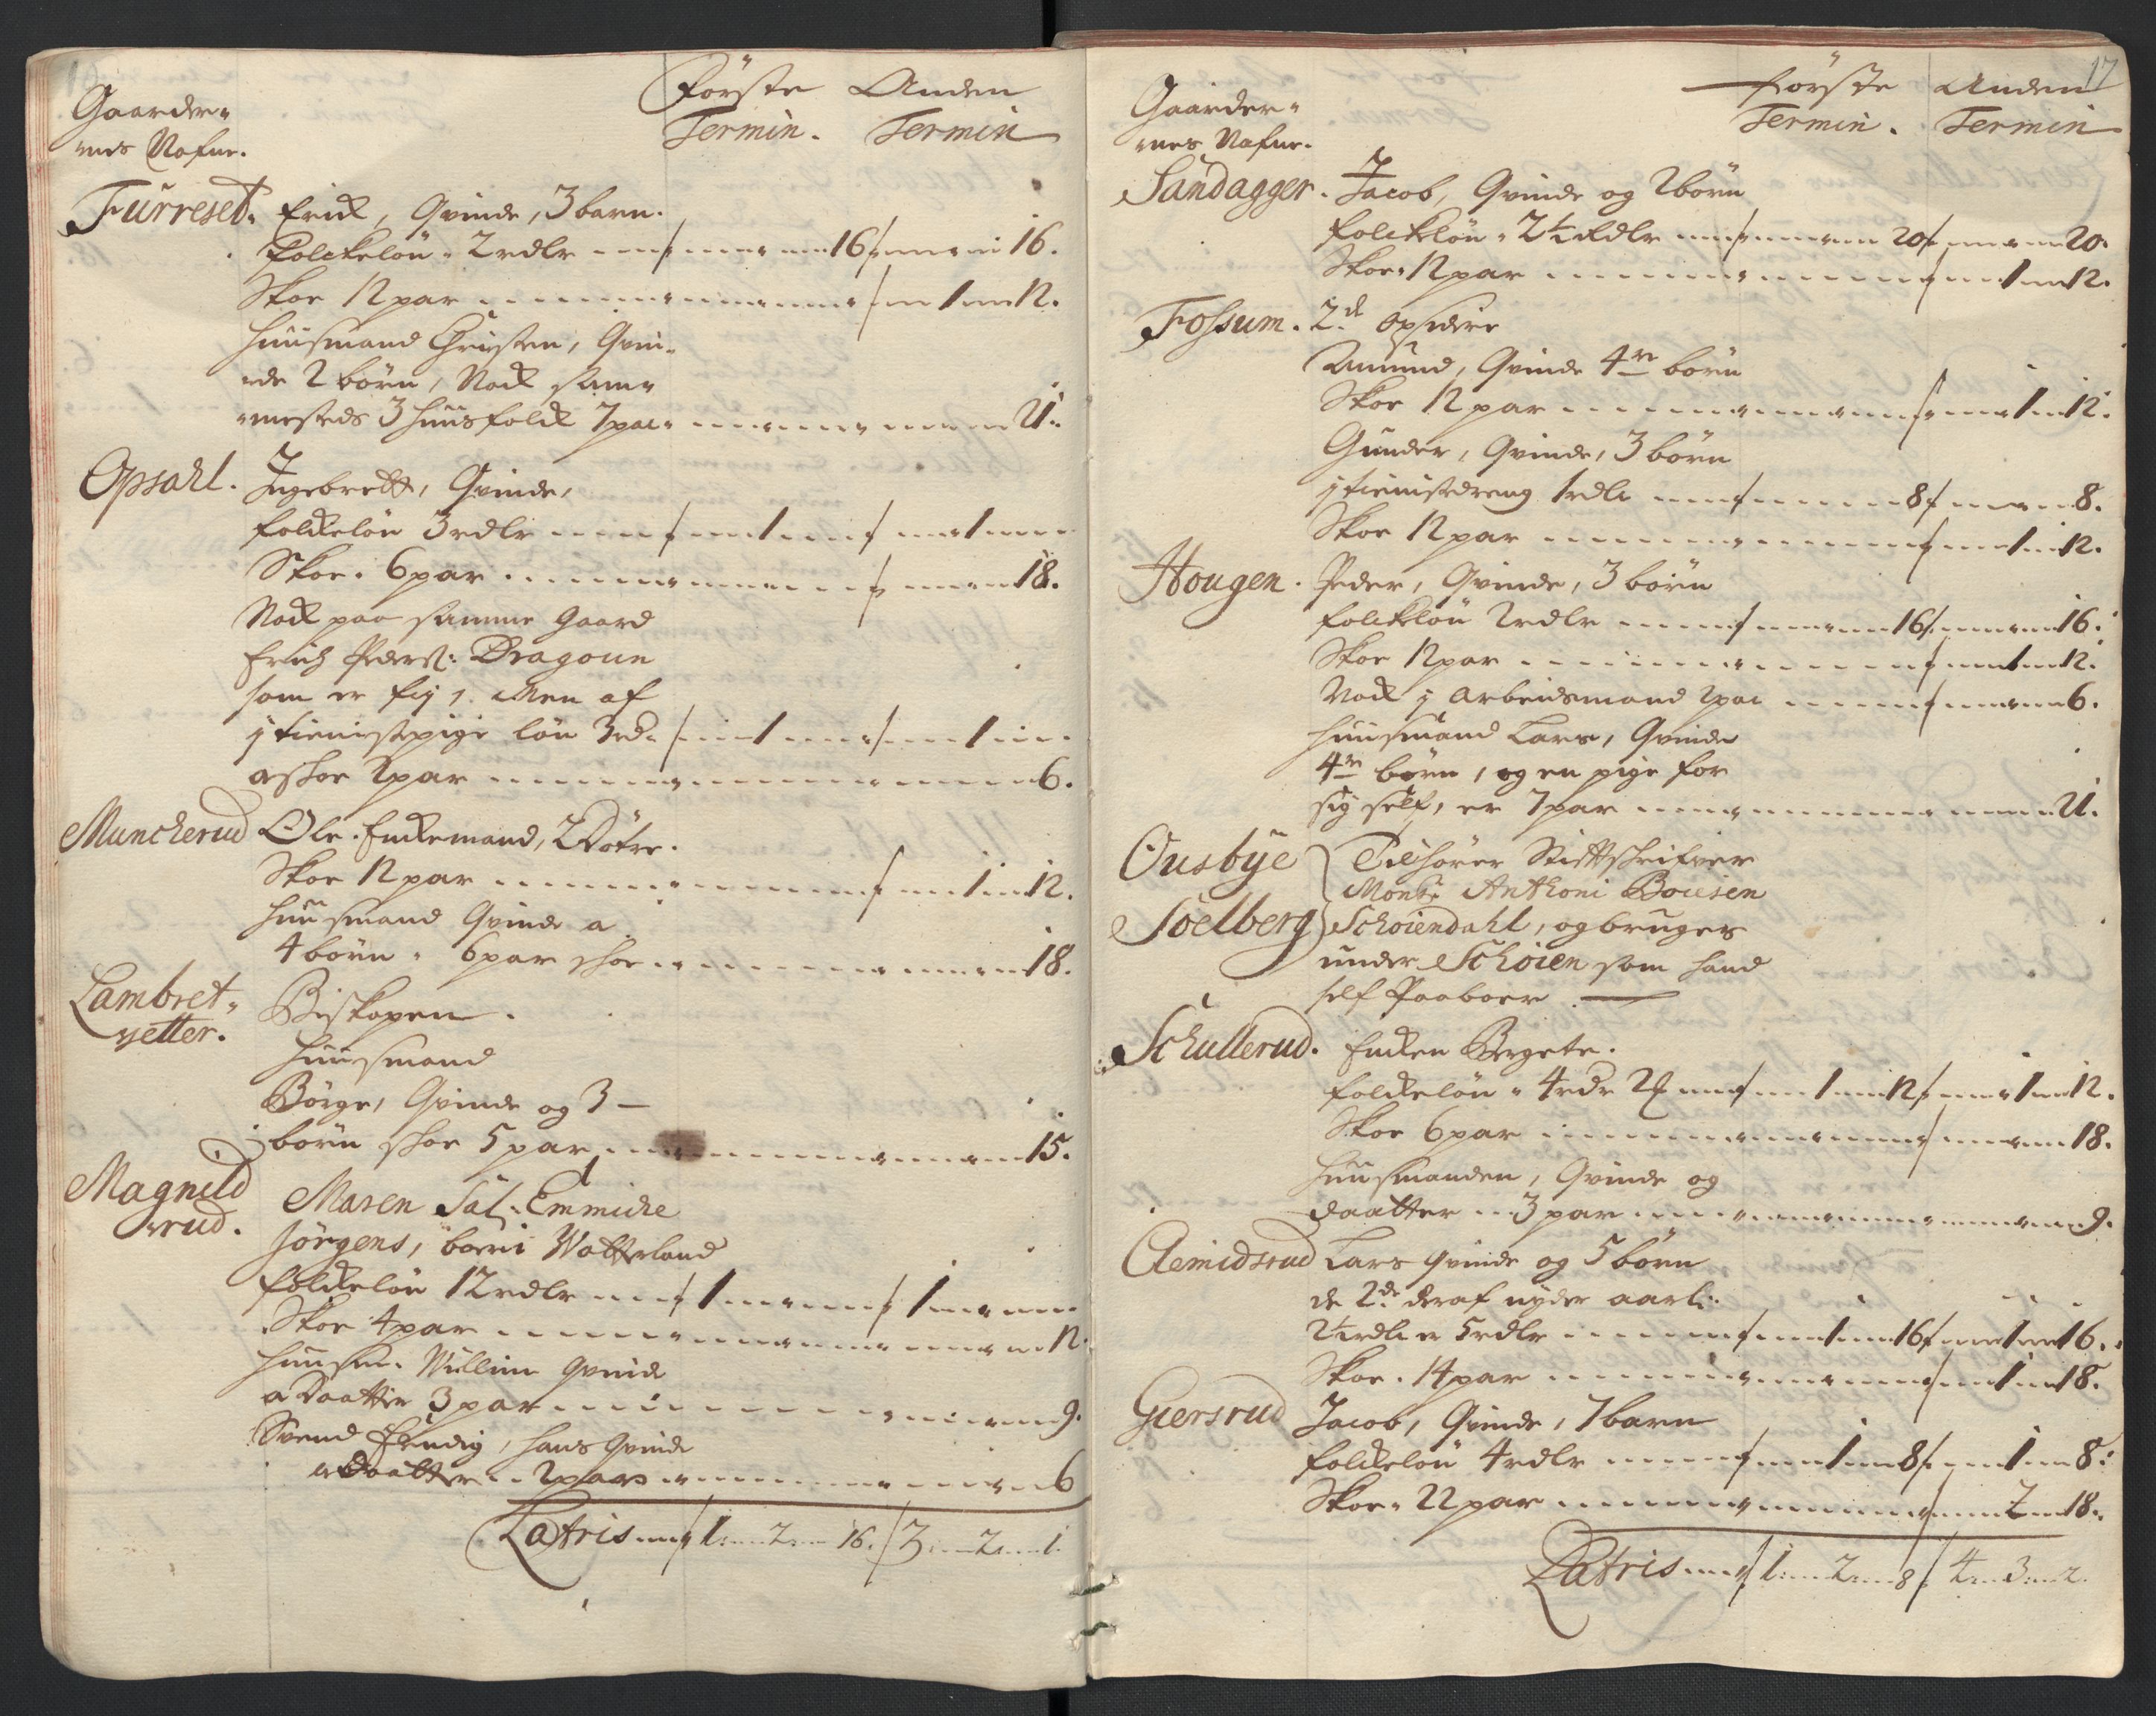 Gaarder-
nes Nafne.
Förste Anden
Termin. Termin
Furreset. Erick, Qvinde, 3 barn.
Folckelön 2 rdlr 16 16.
Skoe 12 par 1 12.
Huusmand Christen, Qvin-
de 2 börn, Nock sam-
mesteds 3 huusfolck 7 par 21.
Opsahl. Ingebrett, Qvinde,
folckelön 3 rdlr 1 1
Skoe. 6 par 18.
Nock paa samme Gaard
Erich Peders: Dragoun
som er frj, Men af
j tienistepige lön 3 rd. 1 1
a skoe 2 par 6.
Muncherud Ole Enckemand, 2 Döttre.
Skoe 12 par 1 12.
Huusmand Qvinde a
4 börn 6 par skoe 18.
Lambret-
setter. Biskopen.
Huusmand
Börge, Qvinde og 3
börn skoe 5 par 15.
Magnild
rud. Maren Sal. Emmiche
Jörgens, boer i Watterland
folckelön 12 rdlr 1 1
Skoe 4 par 12
Huusm. Willum Qvinde
a Daatter 3 par 9.
Svend, hans Qvinde
a Daatter 2 par 6
Latris 1 2 16. 3 2 1.
17
Gaarder-
nes Nafne.
Förste Anden
Termin. Termin
Sandagger. Jacob, Qvinde og 2 börn
folckelön 2½ Rdlr 20 20.
Skoe 12 par 1 12.
Fossum. 2de opsidere
Amund, Qvinde 4re börn
Skoe 12 par 1 12.
Gunder, Qvinde, 3 börn
j tienistedreng 1 rdlr 8 8.
Skoe 12 par 1 12.
Hougen. Peder, Qvinde, 3 börn
folckelön 2 rdlr 16 16.
Skoe 12 par 1 12.
Nock j arbeidsmand 2 par 6.
Huusmand Lars, Qvinde
4re börn, og en pige for
sig self, er 7 par 21.
Ousbye Tilhörer Stiftskrifver
Monsr Anthoni Bouisen
Söelberg Schöiendahl, og bruges
under Schöien som hand
self Paaboer.
Schullerud. Encken Bergete.
folckelön 4 rdr 2 1 12 1 12.
Skoe 6 par 18.
Huusmanden, Qvinde og
Daatter 3 par 9.
Aemidsrud Lars Qvinde og 5 börn
de 2de deraf nyder aarl:
2½ rdlr er 5 rdlr 1 16 1 16.
Skoe. 14 par 1 18.
Giersrud Jacob, Qvinde, 7 barn
folckelön 4 rdlr 1 8 1 8.
Skoe 22 par 2 18.
Latris 1 2 8 4 3 2.